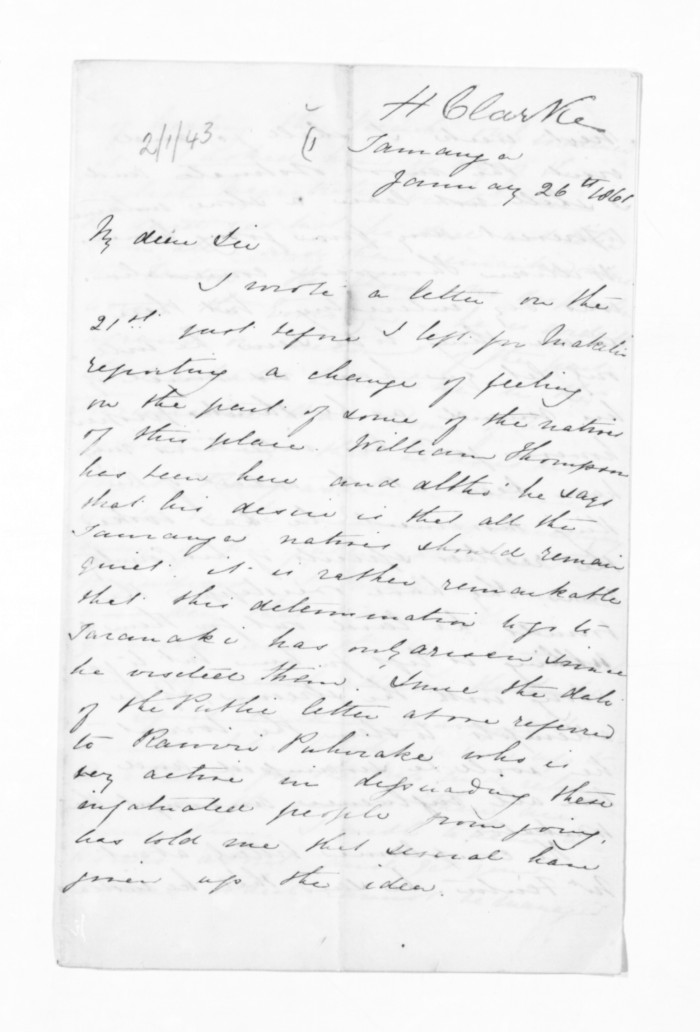 H Clarke
2/1/43
(1
Tauranga
January 26th 1861
My dear Sir
I wrote a letter on the
21st just before I left for Maketu
reporting a change of feeling
on the part of some of the natives
of this place. William Thompson
has been here and altho' he says
that his desire is that all the
Tauranga natives should remain
quiet. it is rather remarkable
that this determination to go to
Taranaki has only arisen since
he visited them. Since the date
of the Public letter above referred
to Rawiri Puhirake who is
very active in dissuading these
infatuated people from going,
has told me that several have
given up the idea.